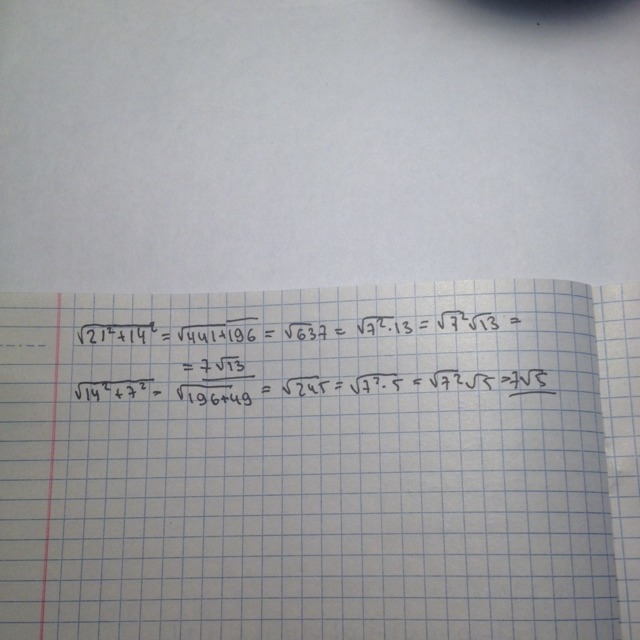 √21²+14² = √441+196 = √637 = √7²·13 = √7² √13 =
= 7√13
√14²+7² = √196+49 = √245 = √7²·5 = √7² √5 = 7√5